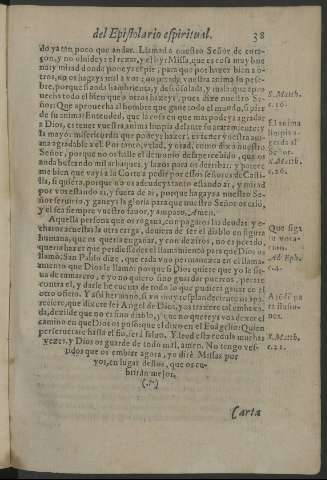 del Epistolario espiritual. 38
do ya tan poco que andar. Llamad a nuestro Señor de cora-
çon, y no oluideys el rezar, y el oyr Missa, que es cosa muy bue
na: y mirad donde poneys el pie, para que por hazer bien a o-
tros, no os hagays mal a vos: no pierda vuestra anima lo pesse-
bre, porque si anda hambrienta, y desconsolada, y mala: que apro
uecha todo el bien que a otros hazeys? pues dize nuestro Se-
ñor: Que aprouecha al hombre que gane todo el mundo, si pier
de su anima? Entended, que la cosa en que mas podeys agradar
a Dios, es tener vuestra anima limpia delante su acatamiento: y
la mayor misericordia que podeys hazer, es tener vuestra ani-
ma agradable a el. Por tanto, velad, y orad, como dixo nuestro
Señor, porque no os halle el demonio desapercebido, que os
anda buscando mil achaques, y lazos para os derribar: y parece
me bien que vays a la Corte a pedir por essos señores de Casti-
lla, si quiera, porque a no os acudeys tanto estando ay, y mirad
por vos estando ay, y fuera de ay, porque hagays a nuestro Se-
ñor seruicio, y ganeys la gloria para que nuestro Señor os crió,
y el sea siempre vuestro fauor, y amparo, Amen.
Aquella persona que os rogaua, con pagaros las deudas, y e-
charos acuestas la otra carga, deuiera de ser el diablo en figura
humana, que os querria engañar, y con deziros, no es pecado,
querria hazer que perdiessedes el llamamiento para que Dios os
llamó: San Pablo dize, que cada vno permanezca en el llama-
miento que Dios le llamó: porque si Dios quiere que yo le sir-
ua de camarero, e yo no quiero sino guardar puercos, perare
contra el, y darle he cuenta de todo lo que pudiera ganar en el
otro oficio. Y assi hermano, si vn muy resplandeciente os apa-
reciere, que dixere ser Angel de Dios, y os traxere tal embaxa-
da, dezilde que no es sino diablo, y que no quereys vos dexar el
camino en que Dios os puso: que el dixo en el Euãgelio: Quien
perseuerare hasta el fin, será saluo. Y leed esta cedula muchas
vezes, y Dios os guarde de todo mal, amen. No tengo ves-
tidos que os embiar agora, yo diré Missas por
vos, en lugar dellos, que os cu-
brirán mejor.
(.?.)
S. Matth.
c. 16.
El anima
limpia a-
grada al
Señor.
S. Matth.
c. 26.
Que siga
su voca-
cion.
Ad Eph.
c. 4.
S. Matth.
c. 21.
Carta